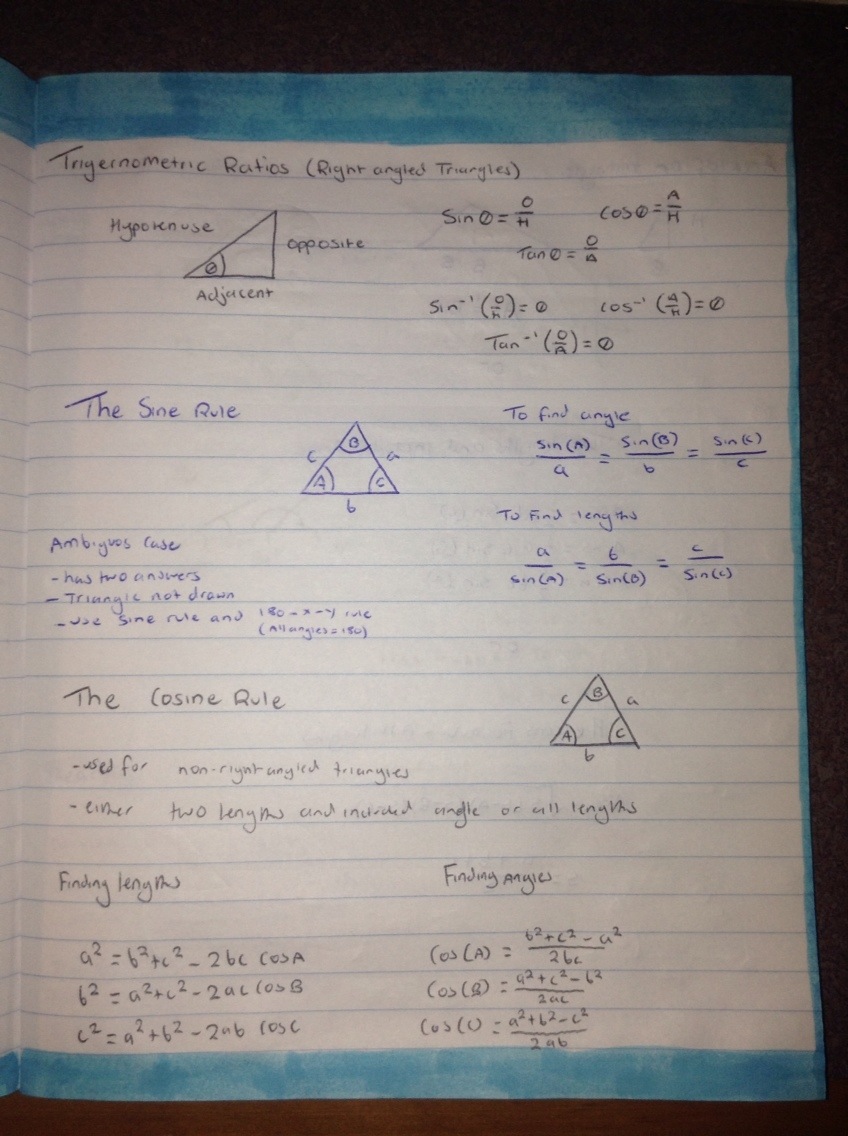 Trigernometric Ratios (Right angled Triangles)
Hypotenuse
opposite
θ
Adjacent
Sin θ = O/H
Cos θ = A/H
Tan θ = O/A
Sin⁻¹ (O/H) = θ
cos⁻¹ (A/H) = θ
Tan⁻¹ (O/A) = θ
The Sine Rule
B
c
a
A
C
b
To find angle
sin(A)/a = sin(B)/b = sin(C)/c
To find lengths
a/sin(A) = b/sin(B) = c/sin(C)
Ambiguos case
- has two answers
- Triangle not drawn
- use sine rule and 180-x-y rule
(All angles = 180)
The Cosine Rule
B
c
a
A
C
b
- used for non-right angled triangles
- either two lengths and included angle or all lengths
Finding lengths
a² = b²+c² - 2bc cosA
b² = a²+c² - 2ac cosB
c² = a²+b² - 2ab cosC
Finding Angles
Cos(A) = b²+c²-a²/2bc
Cos(B) = a²+c²-b²/2ac
Cos(C) = a²+b²-c²/2ab